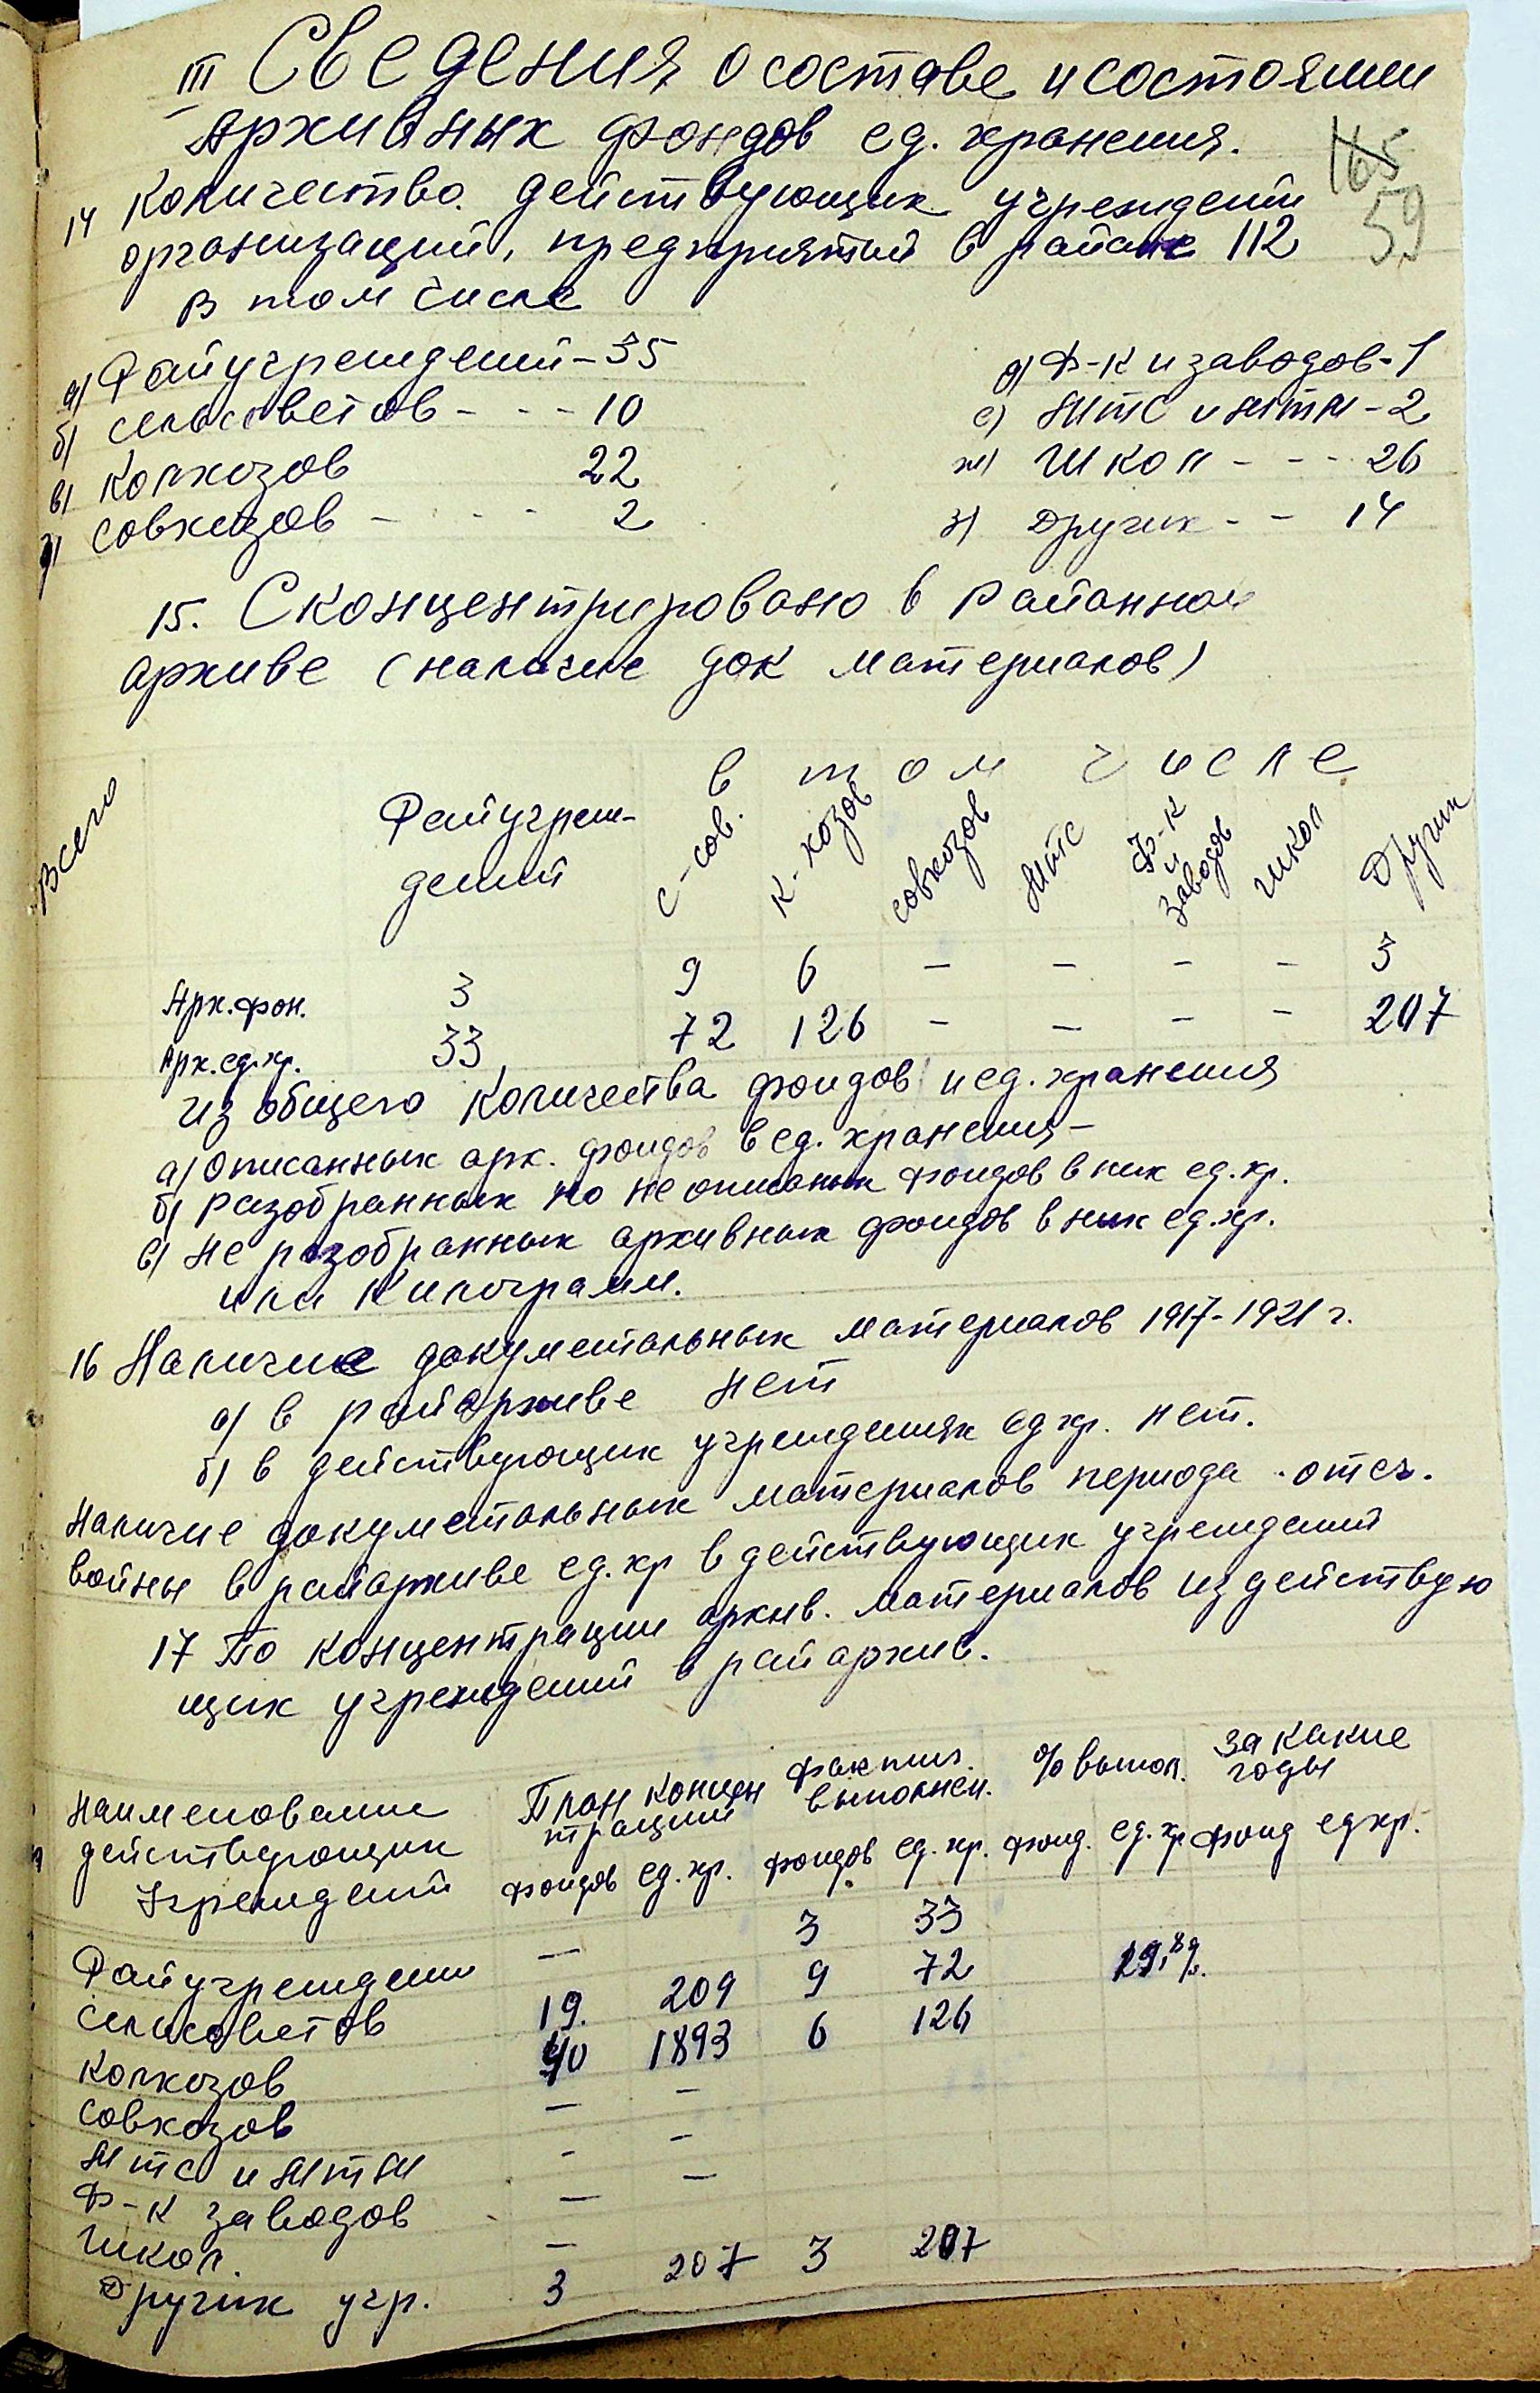 III Сведения о составе и состоянии
Архивных фондов ед. хранения.
165
59
14 Количество действующих учреждений
организаций, предприятий в районе 112
в том числе
а) Райучреждений - 35
б) сельсоветов - - - 10
в) колхозов 22
г) совхозов - - - - 2
д) Ф-к и заводов - 1
е) МТС и МТМ - 2
ж) Школ - - - 26
з) Других - - 14
15. Сконцентрировано в районном
архиве (наличие док материалов)
в том числе
Всего
Райучреж-
дений
с-сов.
к-хозов
совхозов
МТС
Ф-к
и
заводов
школ
Других
Арх.фон. 3 9 6 - - - - 3
Арх.ед.хр. 33 72 126 - - - - 207
из общего количества фондов и ед. хранения
а) Описанных арх. фондов в ед. хранения -
б) разобранных но не описаных фондов в них ед. хр.
в) не разобранных архивных фондов в них ед. хр.
или килограмм.
16 Наличие документальных материалов 1917-1921 г.
а) в райархиве нет
б) в действующих учреждениях ед хр. нет.
Наличие документальных материалов периода отеч.
войны в райархиве ед. хр в действующих учреждений
17 По концентрации архив. материалов из действую
щих учреждений в райархив.
Наименование
действующих
Учреждений
План концен
трации
фактич.
выполнен.
% выпол.
за какие
годы
фондов ед. хр. фондов ед. хр. фонд. ед. хр фонд ед хр.
Райучреждени — 3 33
сельсоветов 19. 209 9 72 29,8%.
колхозов 40 1893 6 126
совхозов — —
МТС и МТМ - -
Ф-к заводов — —
школ. —
Других учр. 3 207 3 207